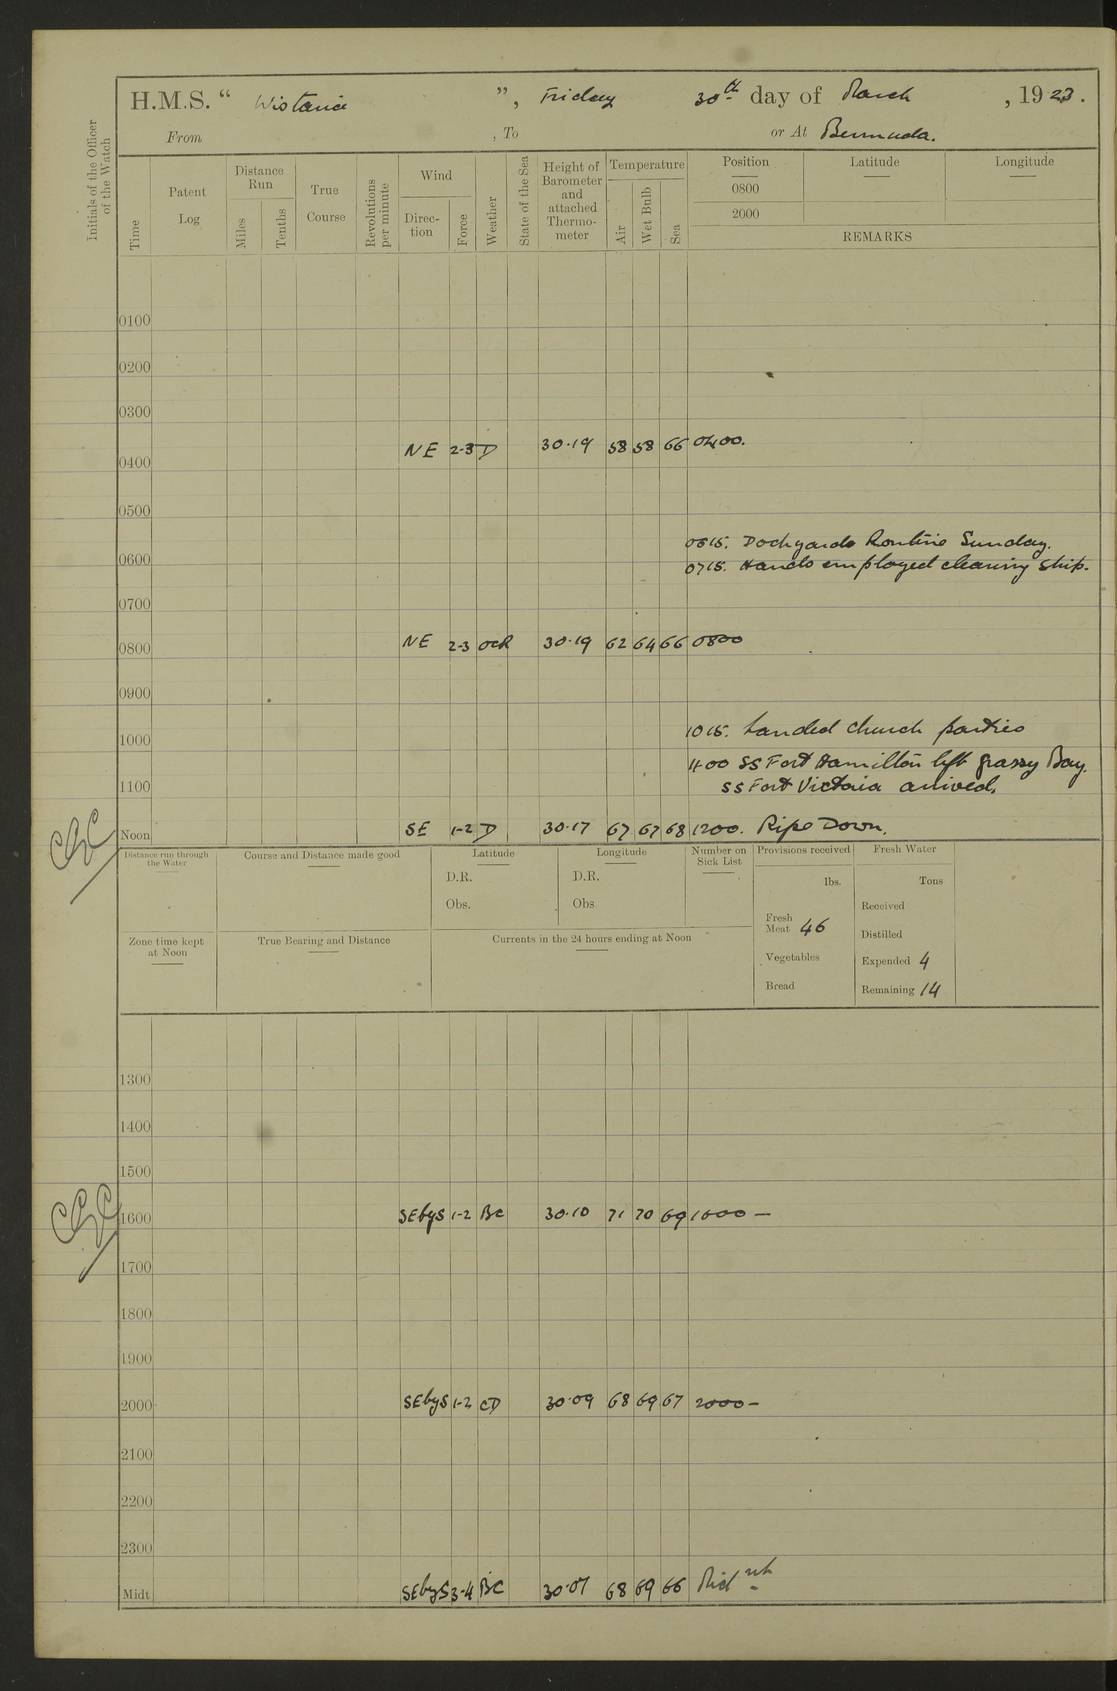 H.M.S. " Wistaria ", Friday 30th day of March, 1923.
From , To or At Bermuda.
Initials of the Officer of the Watch
Time
Patent Log
Distance Run
Miles
Tenths
True Course
Revolutions per minute
Wind
Direc-tion
Force
Weather
State of the Sea
Height of Barometer and attached Thermo-meter
Temperature
Air
Wet Bulb
Sea
Position
0800
2000
Latitude
Longitude
REMARKS
0100
0200
0300
0400 NE 2-3 D 30.19 58 58 66 0400.
0500
0615. Dockyards Routine Sunday.
0600 0715. Hands employed cleaning ship.
0700
0800 NE 2-3 OCR 30.19 62 64 66 0800
0900
1000 1015. Landed Church parties
1100 SS Fort Hamilton left Grassy Bay.
1100 SS Fort Victoria arrived.
Noon SE 1-2 D 30.17 67 67 68 1200. Pipe Down.
Distance run through the Water
Course and Distance made good
Latitude
D.R.
Obs.
Longitude
D.R.
Obs
Number on Sick List
Provisions received
lbs.
Fresh Meat 46
Vegetables
Bread
Fresh Water
Tons
Received
Distilled
Expended 4
Remaining 14
Zone time kept at Noon
True Bearing and Distance
Currents in the 24 hours ending at Noon
1300
1400
1500
1600 SEbyS 1-2 BC 30.10 71 70 69 1600 —
1700
1800
1900
2000 SEbyS 1-2 CD 30.09 68 69 67 2000 —
2100
2200
2300
Midt SEbyS 3-4 BC 30.07 68 69 66